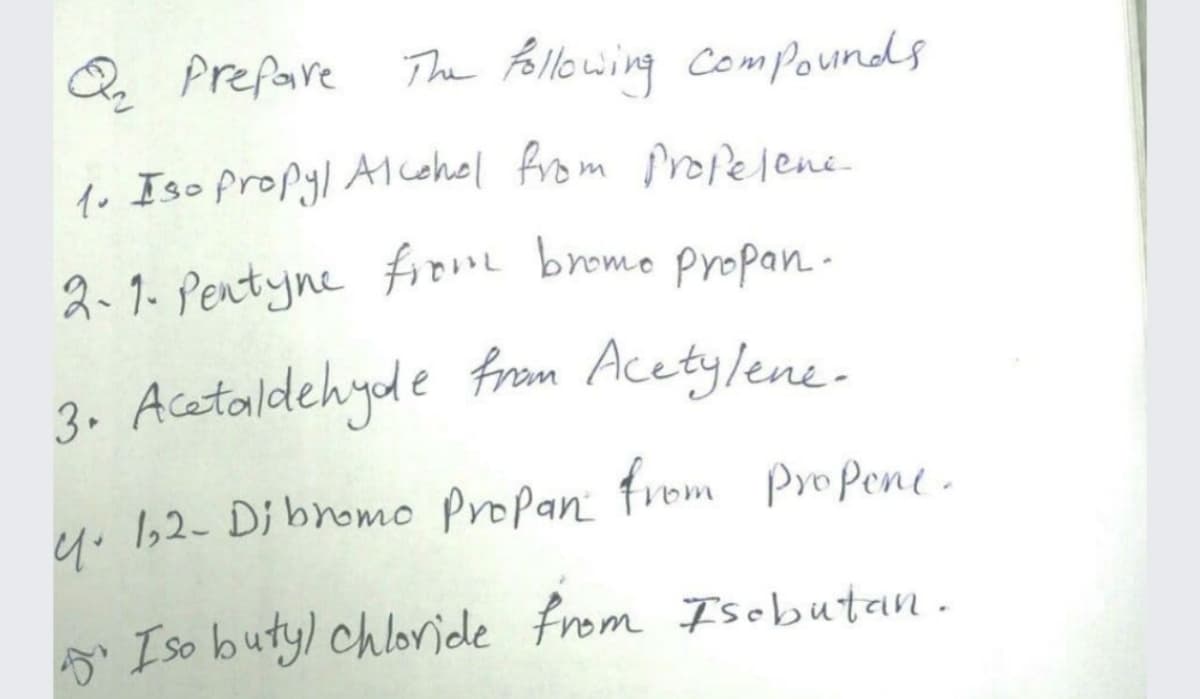 Q2 Prepare The following Compounds
1. Iso propyl Alcohol from Propelene
2- 1- Pentyne from bromo propan.
3. Acetaldehyde from Acetylene-
4. 1,2- Dibromo Propan from propene.
5. Iso butyl chloride from Isobutan.